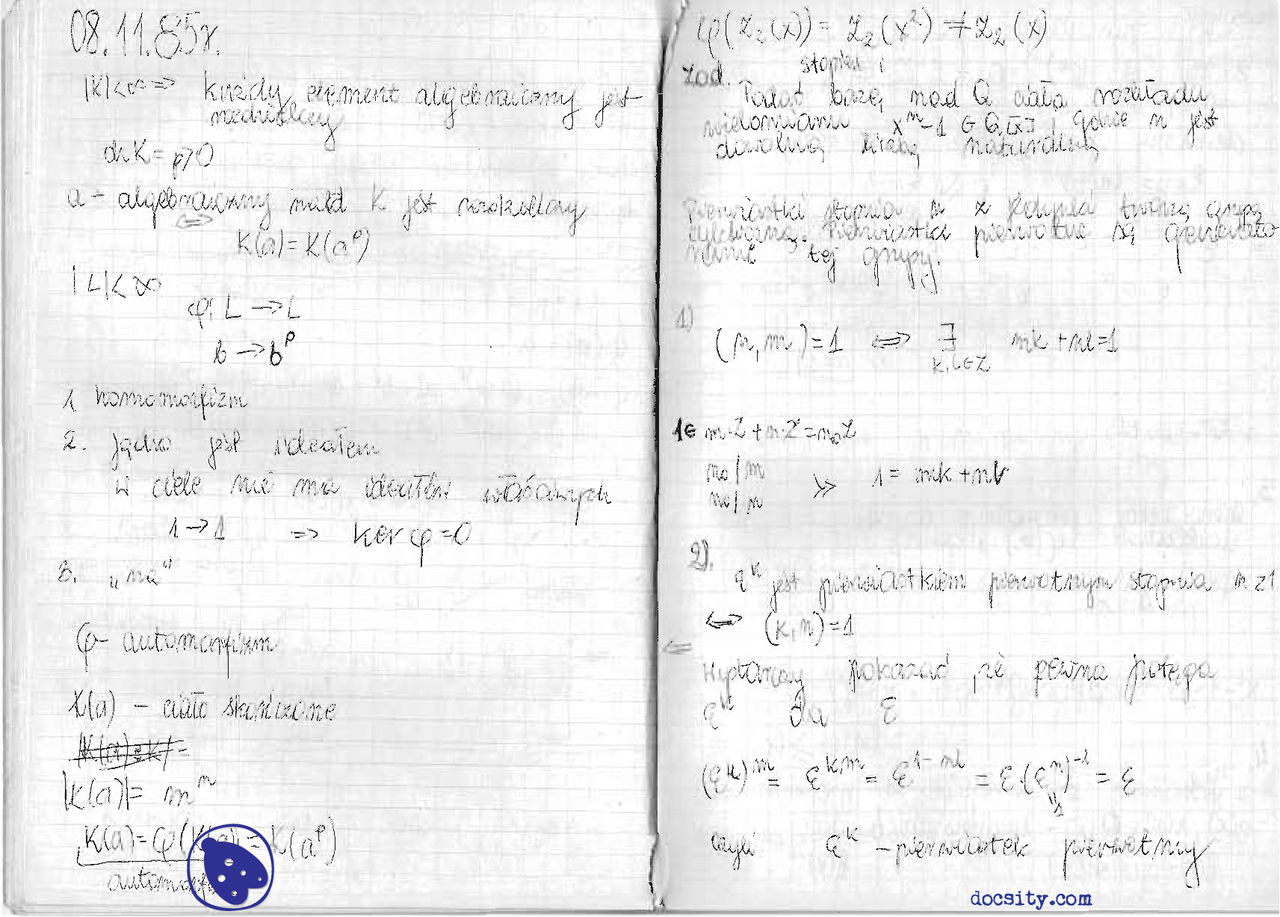 08.11.85r.
|K|<∞ => każdy element algebraiczny jest
rozdzielczy
chK = p>0
a - algebraiczny nad K jest rozdzielczy
<=>
K(a)=K(a^p)
|L|<∞
φ: L → L
b → b^p
1. homomorfizm
2. jądro jest ideałem
w ciele nie ma ideałów właściwych
1 → 1 => ker φ = 0
3. „na"
φ- automorfizm
K(a) - ciało skończone
|K(a)|= m^n
K(a)=φ(K(a))=K(a^p)
automorf
φ(Z_2(x)) = Z_2(x^2) ≠ Z_2(x)
Zad. stopień i
Podać bazę nad Q ciała rozkładu
wielomianu x^n-1 ∈ Q[x], gdzie n jest
dowolną liczbą naturalną
Pierwiastki stopnia n z tworzą grupę
cykliczną. Pierwiastki pierwotne są generato
rami tej grupy.
1)
(n,m)=1 <=> ∃ mk+nl=1
k,l∈Z
1∈ m·Z+n·Z=n_0Z
n_0/m
n_0/n
>> 1= mk+nl
2).
ε^k jest pierwiastkiem pierwotnym stopnia n z 1
<=> (k,n)=1
<=
Wystarczy pokazać, że pewna potęga
ε^k da ε
(ε^k)^m = ε^{km} = ε^{1-nl} = ε·(ε^n)^{-l} = ε
"1
czyli ε^k -pierwiastek pierwotny
docsity.com